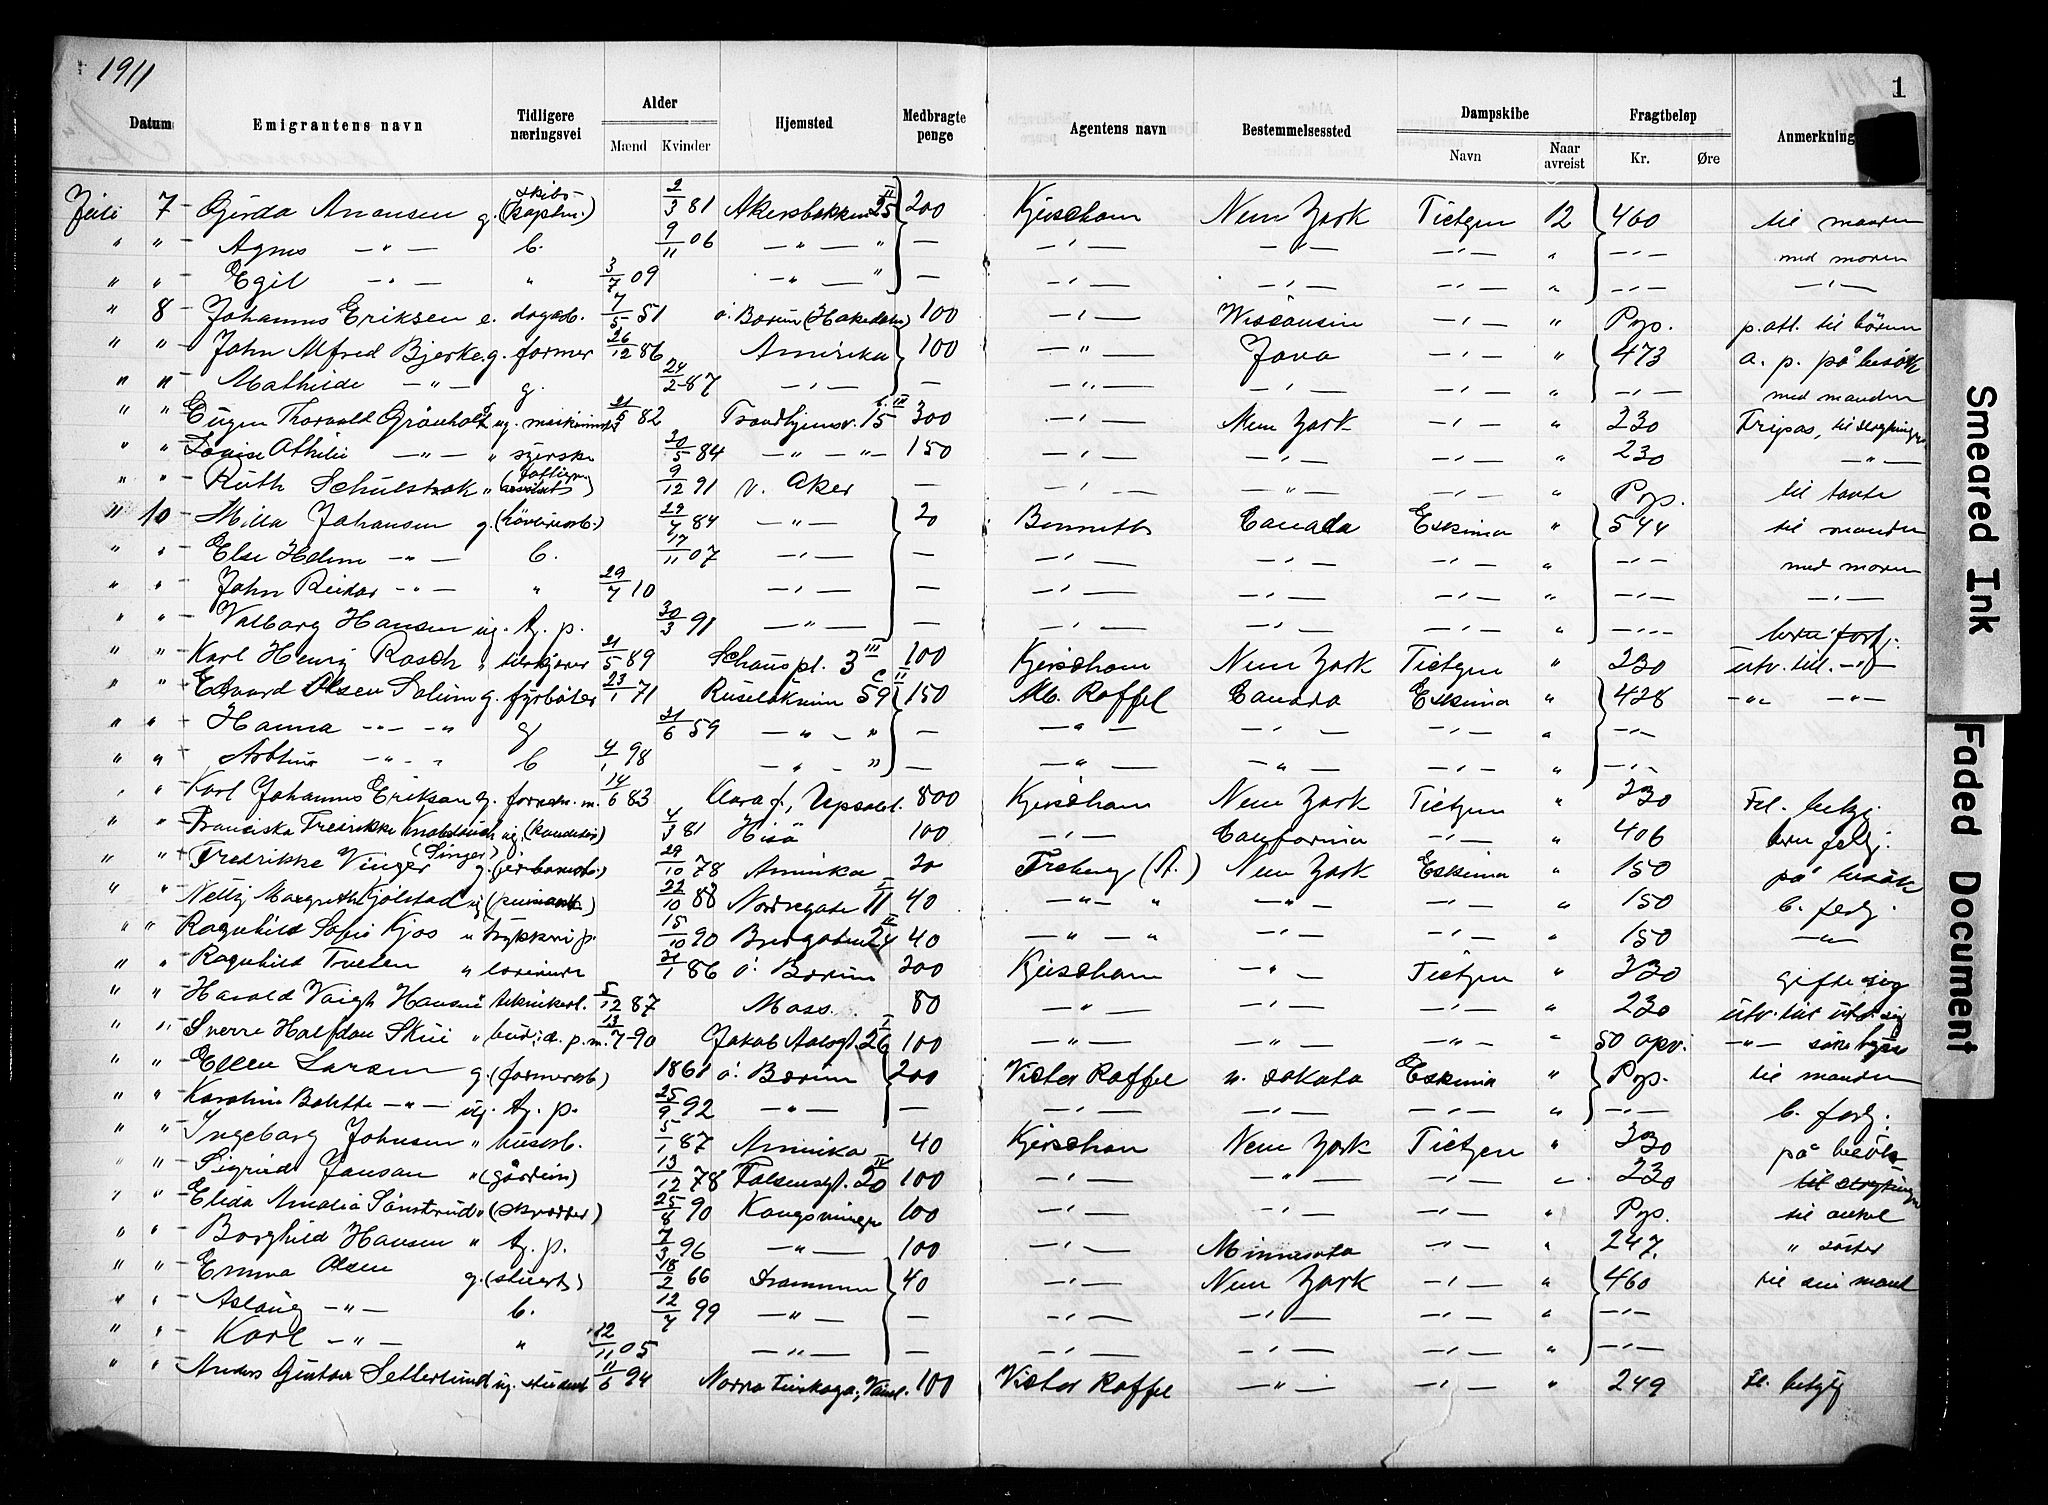 1911
1
Datum Emigrantens navn Tidligere næringsvei Alder Mænd Kvinder Hjemsted Medbragte penge Agentens navn Bestemmelsessted Dampskibe Navn Naar avreist Fragtbeløp Kr. Øre Anmerkning
Juli 7 Gerda Anansen g. (skibs- kaptn.) 2/3 81 Akersbakken 25 II 200 Kjerschom New York Tietgen 12 460 til manden
" " Agnes — " — b. 9/11 06 — " — " — — " — — " — — " — " — " — med moren
" " Egil — " — " 3/7 09 — " — " — — " — — " — — " — " — " — — " —
" 8 Johannes Eriksen e. dagarb. 7/5 51 ö. Bærum (Hakedalen) 100 — " — Wisconsin — " — " Prp. p. att. til børnen
" " John Alfred Bjerke g. former 26/12 86 Amerika 100 — " — Iova — " — " 473 a. p. på besøk
" " Mathilde — " — g. 24/2 87 — " — — — " — — " — — " — " — " — med manden
" " Eugen Thorvald Grönholdt ug. maskinist 21/5 82 Trondhjemsv. 15 III 300 — " — New York — " — " 230 Fripas, til slegtninger
" " Lovise Othilie — " — " syerske 20/5 84 — " — " — 150 — " — — " — — " — " 230 — " —
" " Ruth Schulstock " 9/12 91 v. Aker — — " — — " — — " — " Prp. til tante
" 10 Milla Johansen g. (høvleriarb.) 29/7 84 — " — 20 Bennetts Canada Eskimo " 544 til manden
" " Else Helene — " — b. 17/11 07 — " — — — " — — " — — " — " — " — med moren
" " John Reidar — " — " 29/7 10 — " — — " — — " — — " — " — " — — " —
" " Valborg Hansen ug. tj. p. 30/3 91 — " — — — " — — " — — " — " — " —
" " Karl Henry Rasch " tilskjærer 21/5 89 Schouspl. 3 III 100 Kjerschom New York Tietgen " 230 utv. till. — " —
" " Edvard Olsen Solum g. fyrbøter 23/1 71 Ruseløkveien 59 c II 150 M. Raffel Canada Eskimo " 428 — " — — " —
" " Hanna — " — " g 21/6 59 — " — " — — " — — " — — " — " — " —
" " Arthur — " — " b 4/1 98 — " — " — — " — — " — — " — " — " —
" " Karl Johannes Erikson g. 14/6 83 Klara f., Upsala l. 800 Kjerschom New York Tietgen " 230 Fl. betyg
" " Franciska Fredrikke ug. (konditor) 4/3 81 Hisö 100 — " — California — " — " 406
" " Fredrikke Vinger (Singer) g. (jernbanearb.) 29/10 78 Amerika 20 Freberg (A.) New York Eskimo " 150 på besøk
" " Nelly Margrethe Kjølstad ug 22/10 88 Nordregate 11 I 40 — " — " — " — — " — " 150 b. forb.
" " Ragnhild Sofie Kjos " trykkeri p. 15/10 90 24 II 40 — " — " — " — — " — " 150 — " —
" " Ragnhild Tvesten " lærerinne 31/1 86 ö. Bærum 200 Kjerschom — " — Tietgen " 230 gifte sig
" " Harald Voigh Hansen " 5/12 87 Moss 80 — " — — " — — " — " 230 utv. till utd. sig
" " Sverre Halfdan Skui " 13/7 90 Jakob Aalsgt. 26 I 100 — " — — " — — " — " 50 opv. — " — söke hyre
" " Ellen Larsen g. (formerarb) 1861 ö. Bærum 200 Victor Raffel n. Dakota Eskimo " Prp. til manden
" " Karoline Bolette — " — ug. tj. p. 25/9 92 — " — — — " — — " — — " — " — " — b. forb.
" " Ingeborg Johnsen " husarb. 5/1 87 Amerika 40 Kjerschom New York Tietgen " 230 på besøk
" " Sigrid Jansan " 13/12 78 Falsensgt. 20 IV 100 — " — — " — — " — " 230 til slegtninger
" " Elida Amalia Sönstrud " (skredder) 25/8 90 Kongsvinger 100 — " — — " — — " — " Prp. til onkel
" " Borghild Hansen " tj. p. 7/3 96 — " — 100 — " — Minnesota — " — " 247. " søster
" " Emma Olsen g. (stuert) 18/2 66 Drammen 40 — " — New York — " — " 460 til sin mand
" " Aslaug — " — b. 12/7 99 — " — — — " — — " — — " — " — " —
" " Karl — " — " 12/11 05 — " — — — " — — " — — " — " — " —
" " Anders Gustav Setterlund ug. student 11/6 94 Norra, Värml. 100 Victor Raffel — " — — " — " 249 Fl. betyg
Smeared Ink
Faded Document